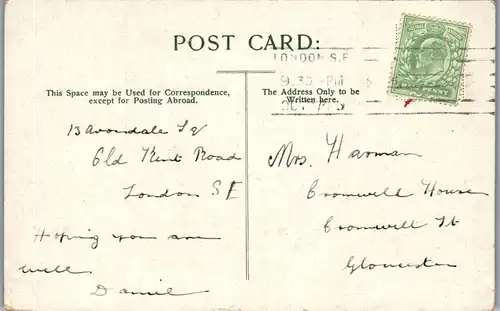 POST CARD:
LONDON S.E
9.30 PM
This Space may be Used for Correspondence,
except for Posting Abroad.
The Address Only to be
Written here.
13 Avondale Sq
Old Kent Road
London S E
Hoping you are
well
Mrs. Harman
Cromwell House
Cromwell St
Gloucester